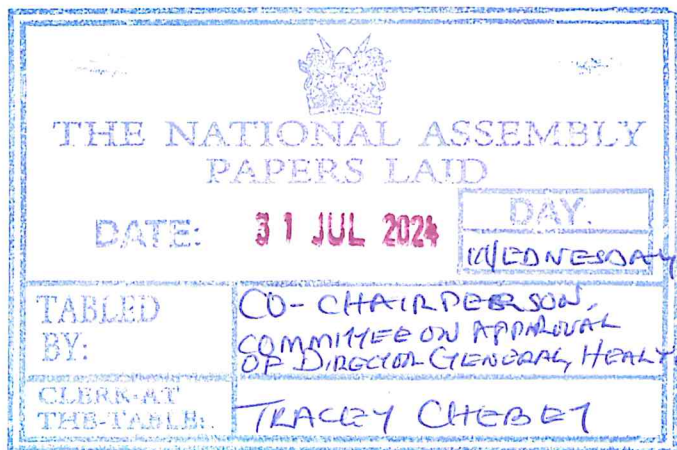 THE NATIONAL ASSEMBLY
PAPERS LAID
DATE: 31 JUL 2024
DAY.
WEDNESDAY
TABLED
BY:
CO-CHAIRPERSON,
COMMITTEE ON APPROVAL
OF DIRECTOR GENERAL, HEALT
CLERK-AT
THE-TABLE:
TRACEY CHEBET